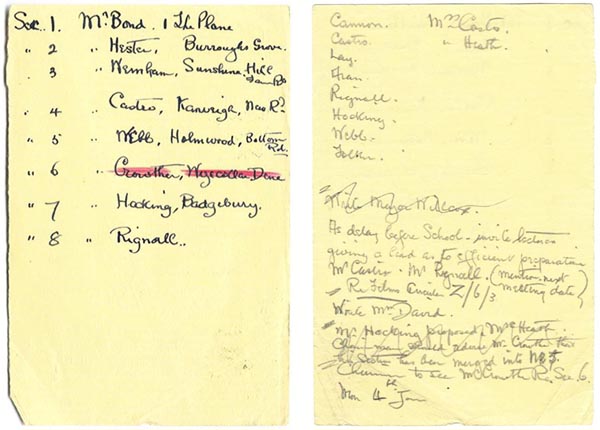 Sec. 1. Mr Bond. 1 The Plane
" 2 " Hester, Burroughs Grove.
" 3 " Wernham, Sunshine, Hill
Farm Rd
" 4 Castro, Kanveigh, New Rd.
" 5 " Webb, Holmwood, Bottom
Rd.
" 6 Crowther, Wyecollar, Dene
" 7 Hocking, Badgebury.
" 8 " Rignall.
Cannon. Mrs Castro.
Castro. " Heath.
Lay.
Rignall.
Hocking.
Webb.
Write Major Wilcox.
As delay before School - invite lectures
giving a lead as to efficient preparation
Mr Castro - Mr Rignall. (mention next
meeting date)
Re Films Circular Z/6/3
Wrote Mr David.
Mr Hocking proposed, Mrs Heath
Mr Crowther that
his Sector has been merged into No 5.
Chairman to see Mr Crowther Re. Sec. 6.
Mon 4th Jan